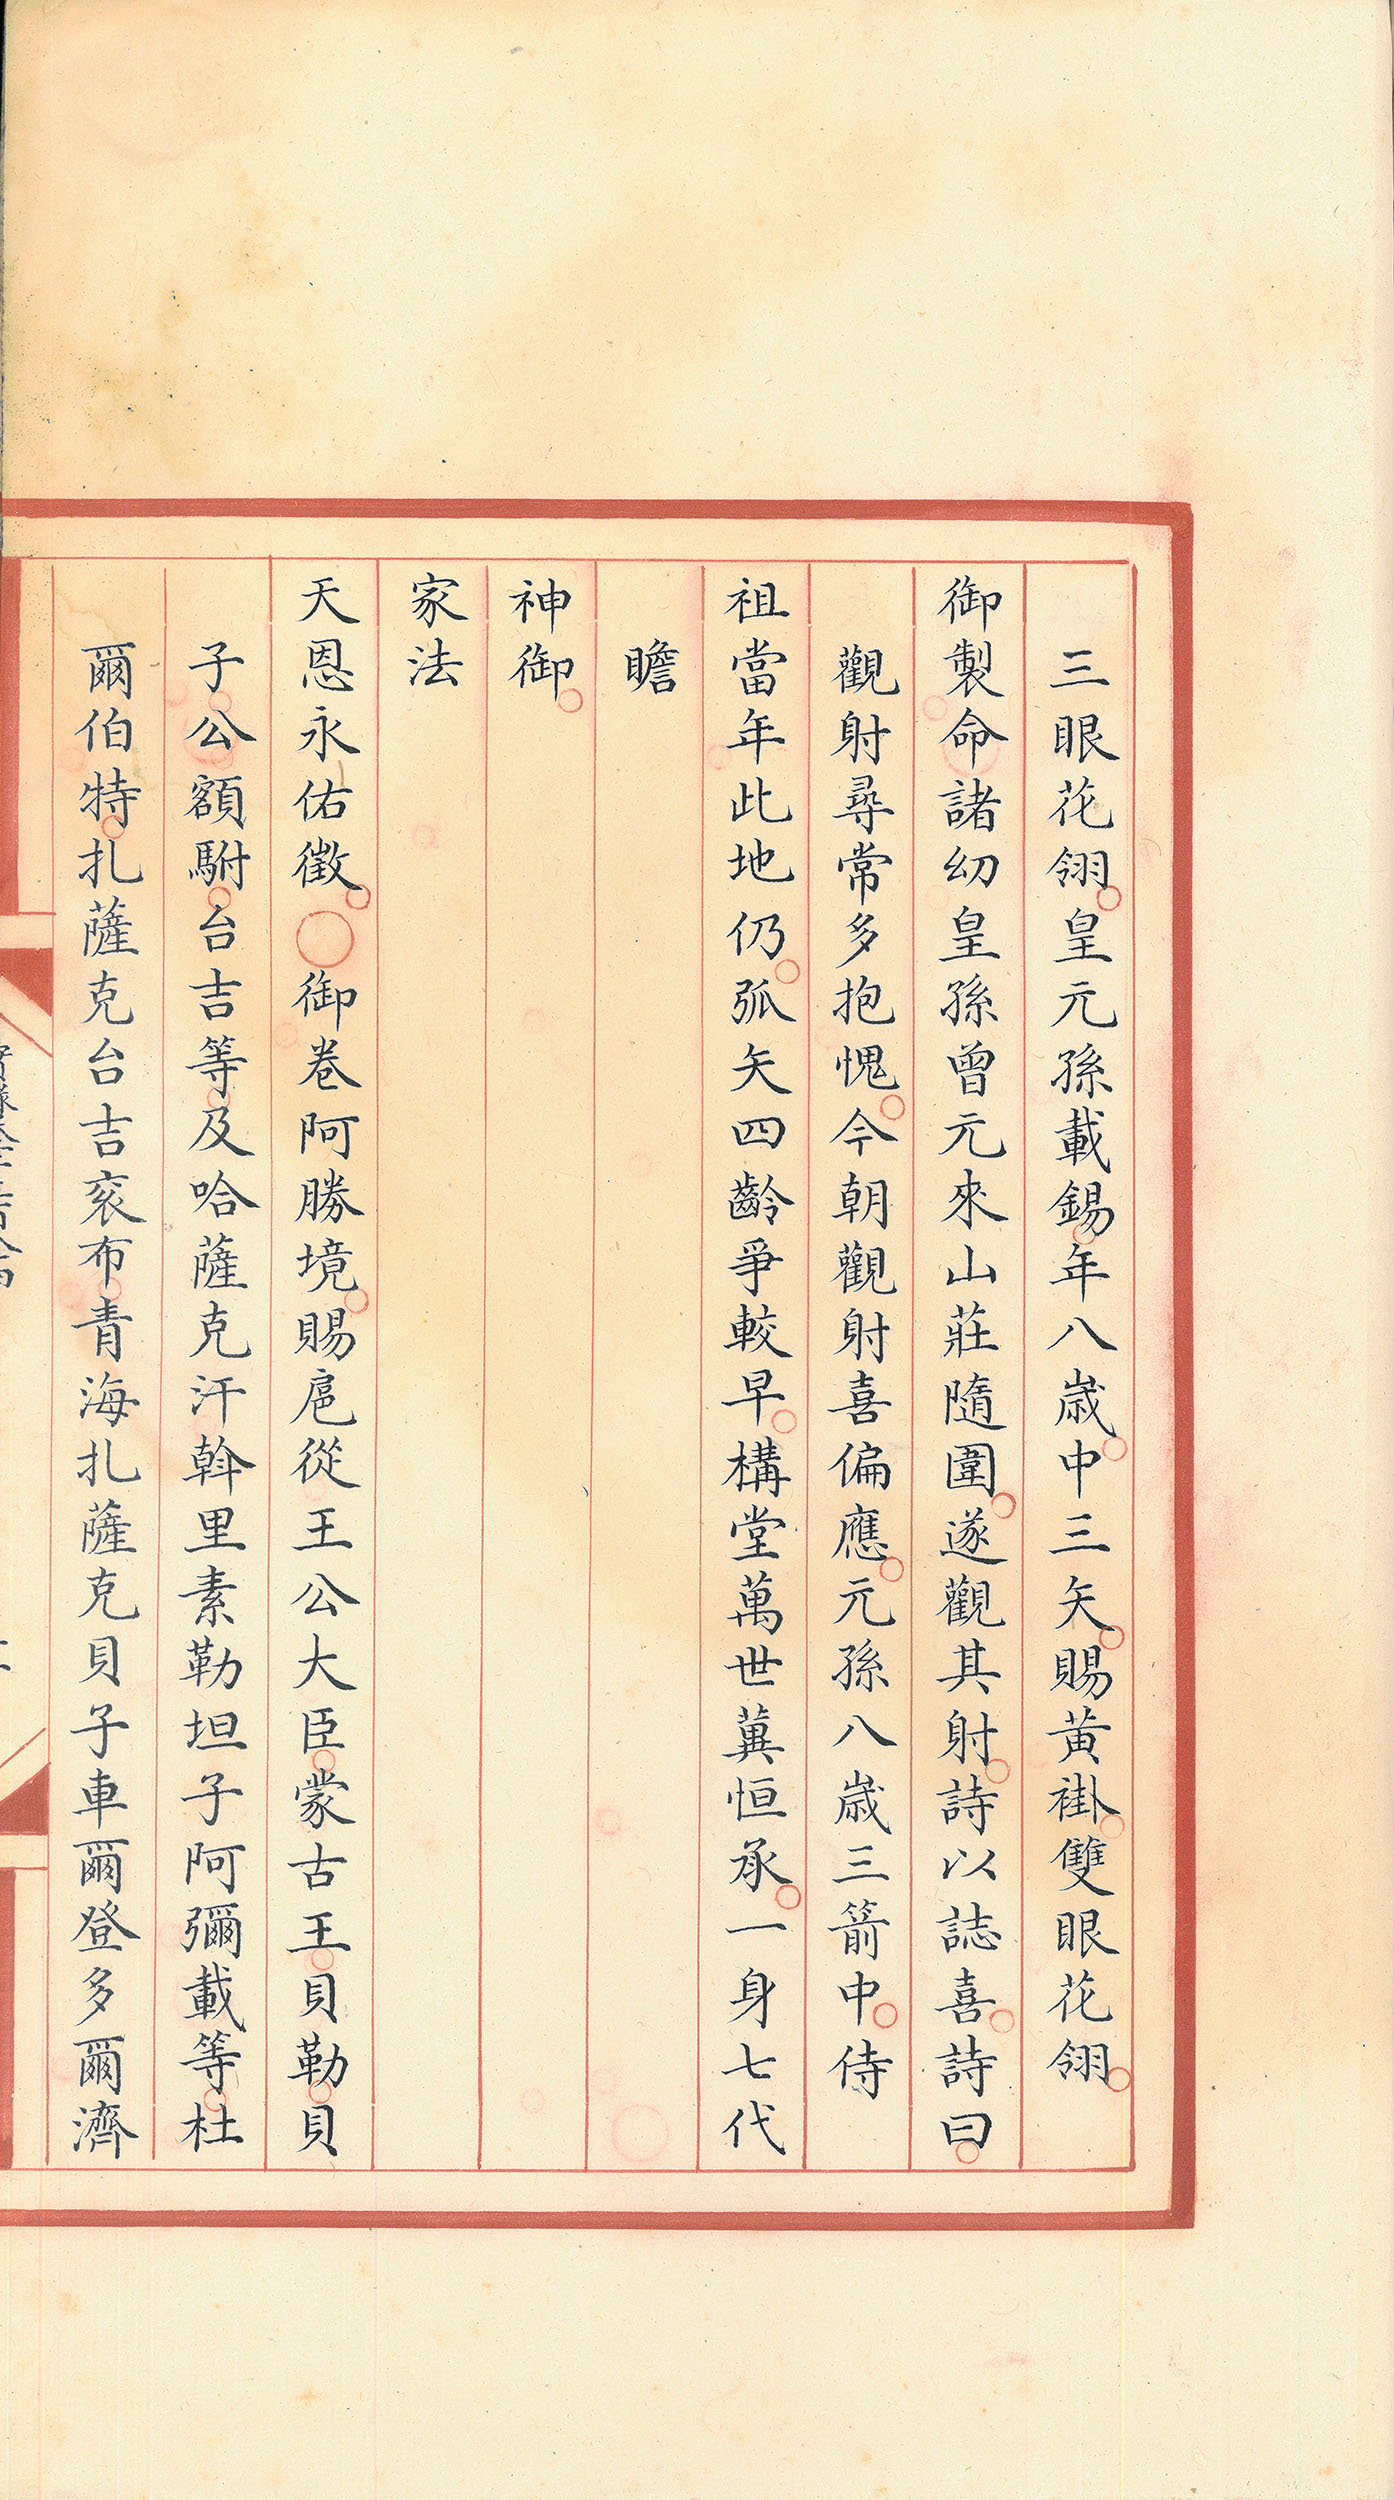 三眼花翎皇元孫載錫年八歲中三矢賜黃褂雙眼花翎
御製命諸幼皇孫曾元來山莊隨圍遂觀其射詩以誌喜詩曰
觀射尋常多抱愧今朝觀射喜偏應元孫八歲三箭中侍
祖當年此地仍弧矢四齡爭較早構堂萬世冀恒承一身七代
瞻
神御
家法
天恩永佑徵○御卷阿勝境賜扈從王公大臣蒙古王貝勒貝
子公額駙台吉等及哈薩克汗斡里素勒坦子阿彌載等杜
爾伯特扎薩克台吉袞布青海扎薩克貝子車爾登多爾濟